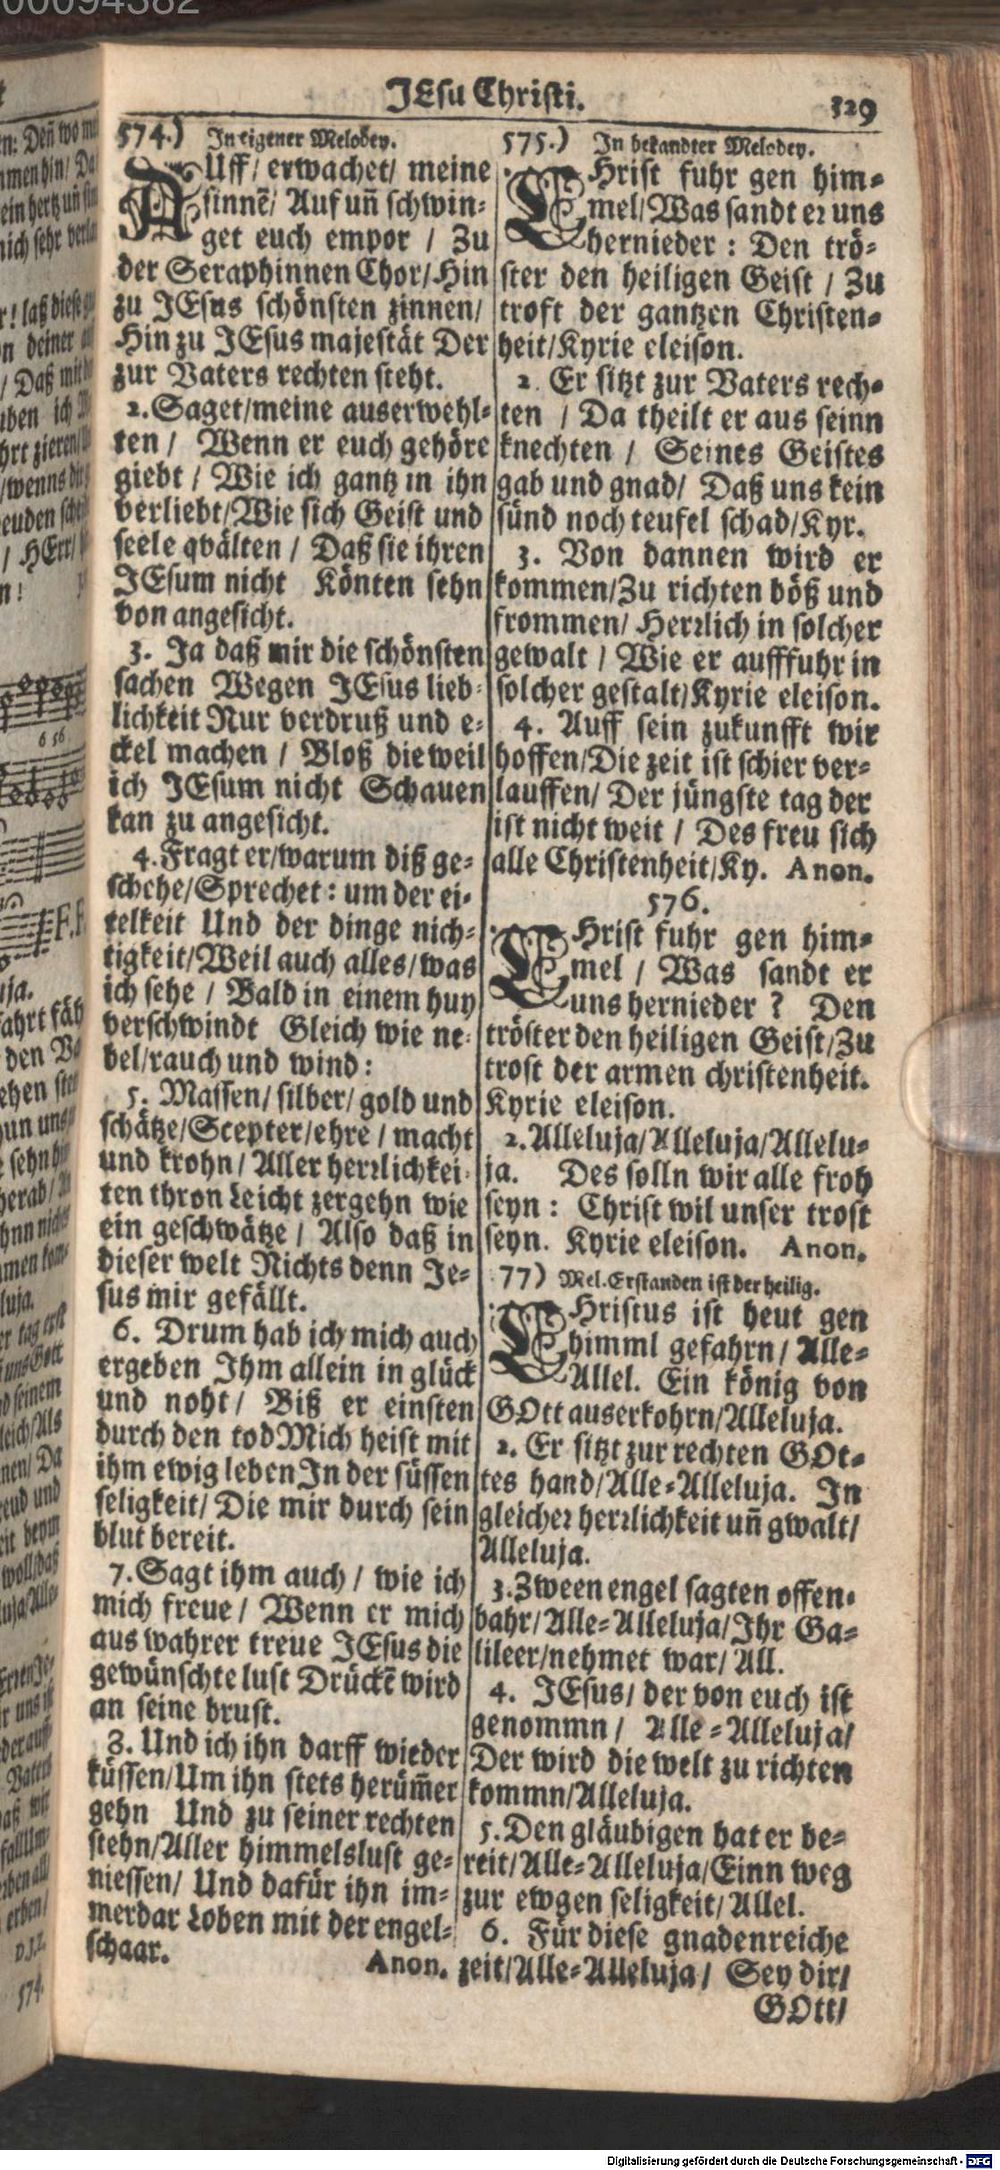 00094382
JEsu Christi.
329
574.) In eigener Melodey.
AUff/ erwachet/ meine
sinnẽ/ Auf uñ schwin-
get euch empor / Zu
der Seraphinnen Chor/Hin
zu JEsus schönsten zinnen/
Hin zu JEsus majestät Der
zur Vaters rechten steht.
2. Saget/meine auserwehl-
ten / Wenn er euch gehöre
giebt / Wie ich gantz in ihn
verliebt/Wie sich Geist und
seele qvälten / Daß sie ihren
JEsum nicht Könten sehn
von angesicht.
3. Ja daß mir die schönsten
sachen Wegen JEsus lieb-
lichkeit Nur verdruß und e-
ckel machen / Bloß die weil
ich JEsum nicht Schauen
kan zu angesicht.
4. Fragt er/warum diß ge-
schehe/Sprechet: um der ei-
telkeit Und der dinge nich-
tigkeit/Weil auch alles/was
ich sehe / Bald in einem huy
verschwindt Gleich wie ne-
bel/rauch und wind:
5. Massen/ silber/ gold und
schätze/Scepter/ehre / macht
und krohn/ Aller herrlichkei-
ten thron Leicht zergehn wie
ein geschwätze / Also daß in
dieser welt Nichts denn Je-
sus mir gefällt.
6. Drum hab ich mich auch
ergeben Ihm allein in glück
und noht/ Biß er einsten
durch den tod Mich heist mit
ihm ewig leben In der süssen
seligkeit/ Die mir durch sein
blut bereit.
7. Sagt ihm auch / wie ich
mich freue / Wenn er mich
aus wahrer treue JEsus die
gewünschte lust Drückẽ wird
an seine brust.
8. Und ich ihn darff wieder
küssen/Um ihn stets herüm̃er
gehn Und zu seiner rechten
stehn/Aller himmelslust ge-
niessen/ Und dafür ihn im-
merdar Loben mit der engel-
schaar. Anon.
575.) In bekandter Melodey.
CHrist fuhr gen him-
mel/Was sandt er uns
hernieder: Den trö-
ster den heiligen Geist / Zu
trost der gantzen Christen-
heit/Kyrie eleison.
2. Er sitzt zur Vaters rech-
ten / Da theilt er aus seinn
knechten / Seines Geistes
gab und gnad/ Daß uns kein
sünd noch teufel schad/Kyr.
3. Von dannen wird er
kommen/Zu richten böß und
frommen/ Herrlich in solcher
gewalt / Wie er aufffuhr in
solcher gestalt/Kyrie eleison.
4. Auff sein zukunfft wir
hoffen/Die zeit ist schier ver-
lauffen/ Der jüngste tag der
ist nicht weit / Des freu sich
alle Christenheit/Ky. Anon.
576.
CHrist fuhr gen him-
mel / Was sandt er
uns hernieder ? Den
tröster den heiligen Geist/Zu
trost der armen christenheit.
Kyrie eleison.
2. Alleluja/Alleluja/Allelu-
ja. Des solln wir alle froh
seyn: Christ wil unser trost
seyn. Kyrie eleison. Anon.
77) Mel. Erstanden ist der heilig.
CHristus ist heut gen
himml gefahrn/ Alle-
Allel. Ein könig von
GOtt auserkohrn/Alleluja.
2. Er sitzt zur rechten GOt-
tes hand/Alle-Alleluja. In
gleicher herrlichkeit uñ gwalt/
Alleluja.
3. Zween engel sagten offen-
bahr/Alle-Alleluja/Ihr Ga-
lileer/nehmet war/ All.
4. JEsus/ der von euch ist
genommn / Alle-Alleluja/
Der wird die welt zu richten
kommn/Alleluja.
5. Den gläubigen hat er be-
reit/Alle-Alleluja/Einn weg
zur ewgen seligkeit/Allel.
6. Für diese gnadenreiche
zeit/Alle-Alleluja/ Sey dir/
GOtt/
Digitalisierung gefördert durch die Deutsche Forschungsgemeinschaft - DFG